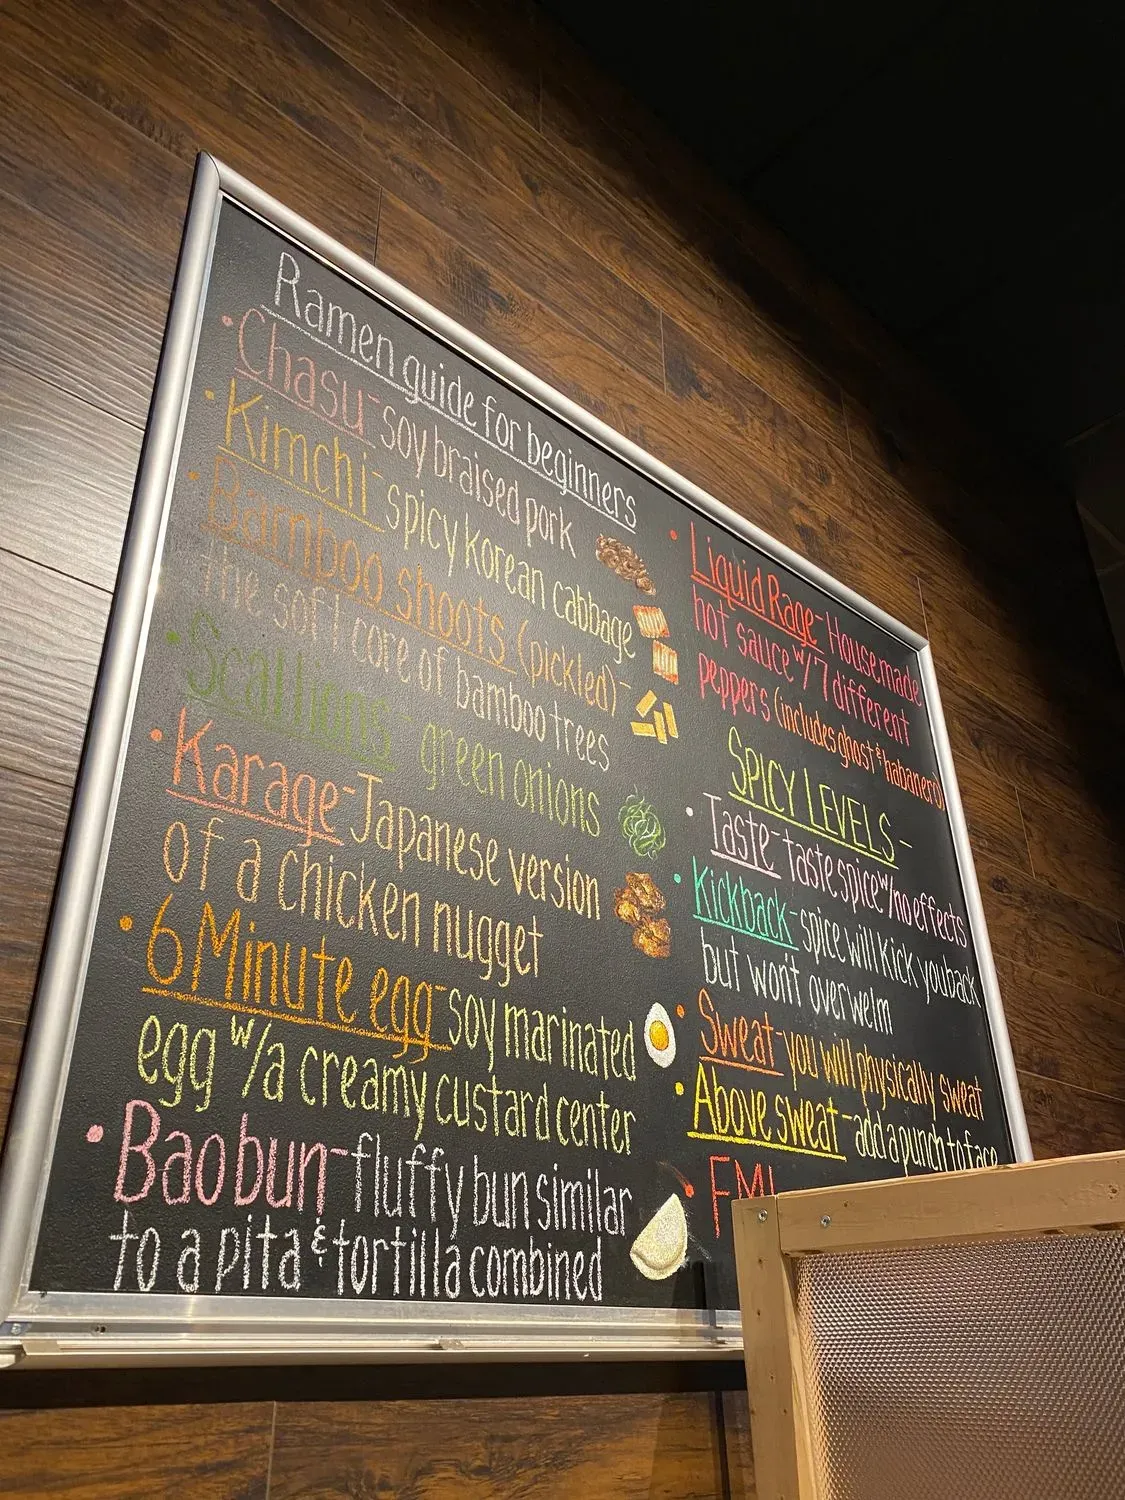 Ramen guide for beginners
• Chasu - soy braised pork
• Kimchi - spicy Korean cabbage
• Bamboo shoots (pickled) -
the soft core of bamboo trees
• Scallions - green onions
• Karage - Japanese version
of a chicken nugget
• 6 Minute egg - soy marinated
egg w/ a creamy custard center
• Bao bun - fluffy bun similar
to a pita & tortilla combined
• Liquid Rage - Housemade
hot sauce w/ 7 different
peppers (includes ghost & habanero)
SPICY LEVELS -
• Taste - taste spice w/ no effects
• Kickback - spice will kick you back
but won't overwelm
• Sweat - you will physically sweat
• Above sweat - add a punch to face